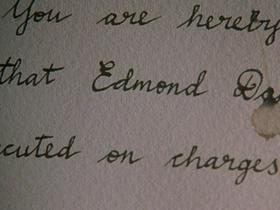 You are hereby
that Edmond Da
cuted on charges